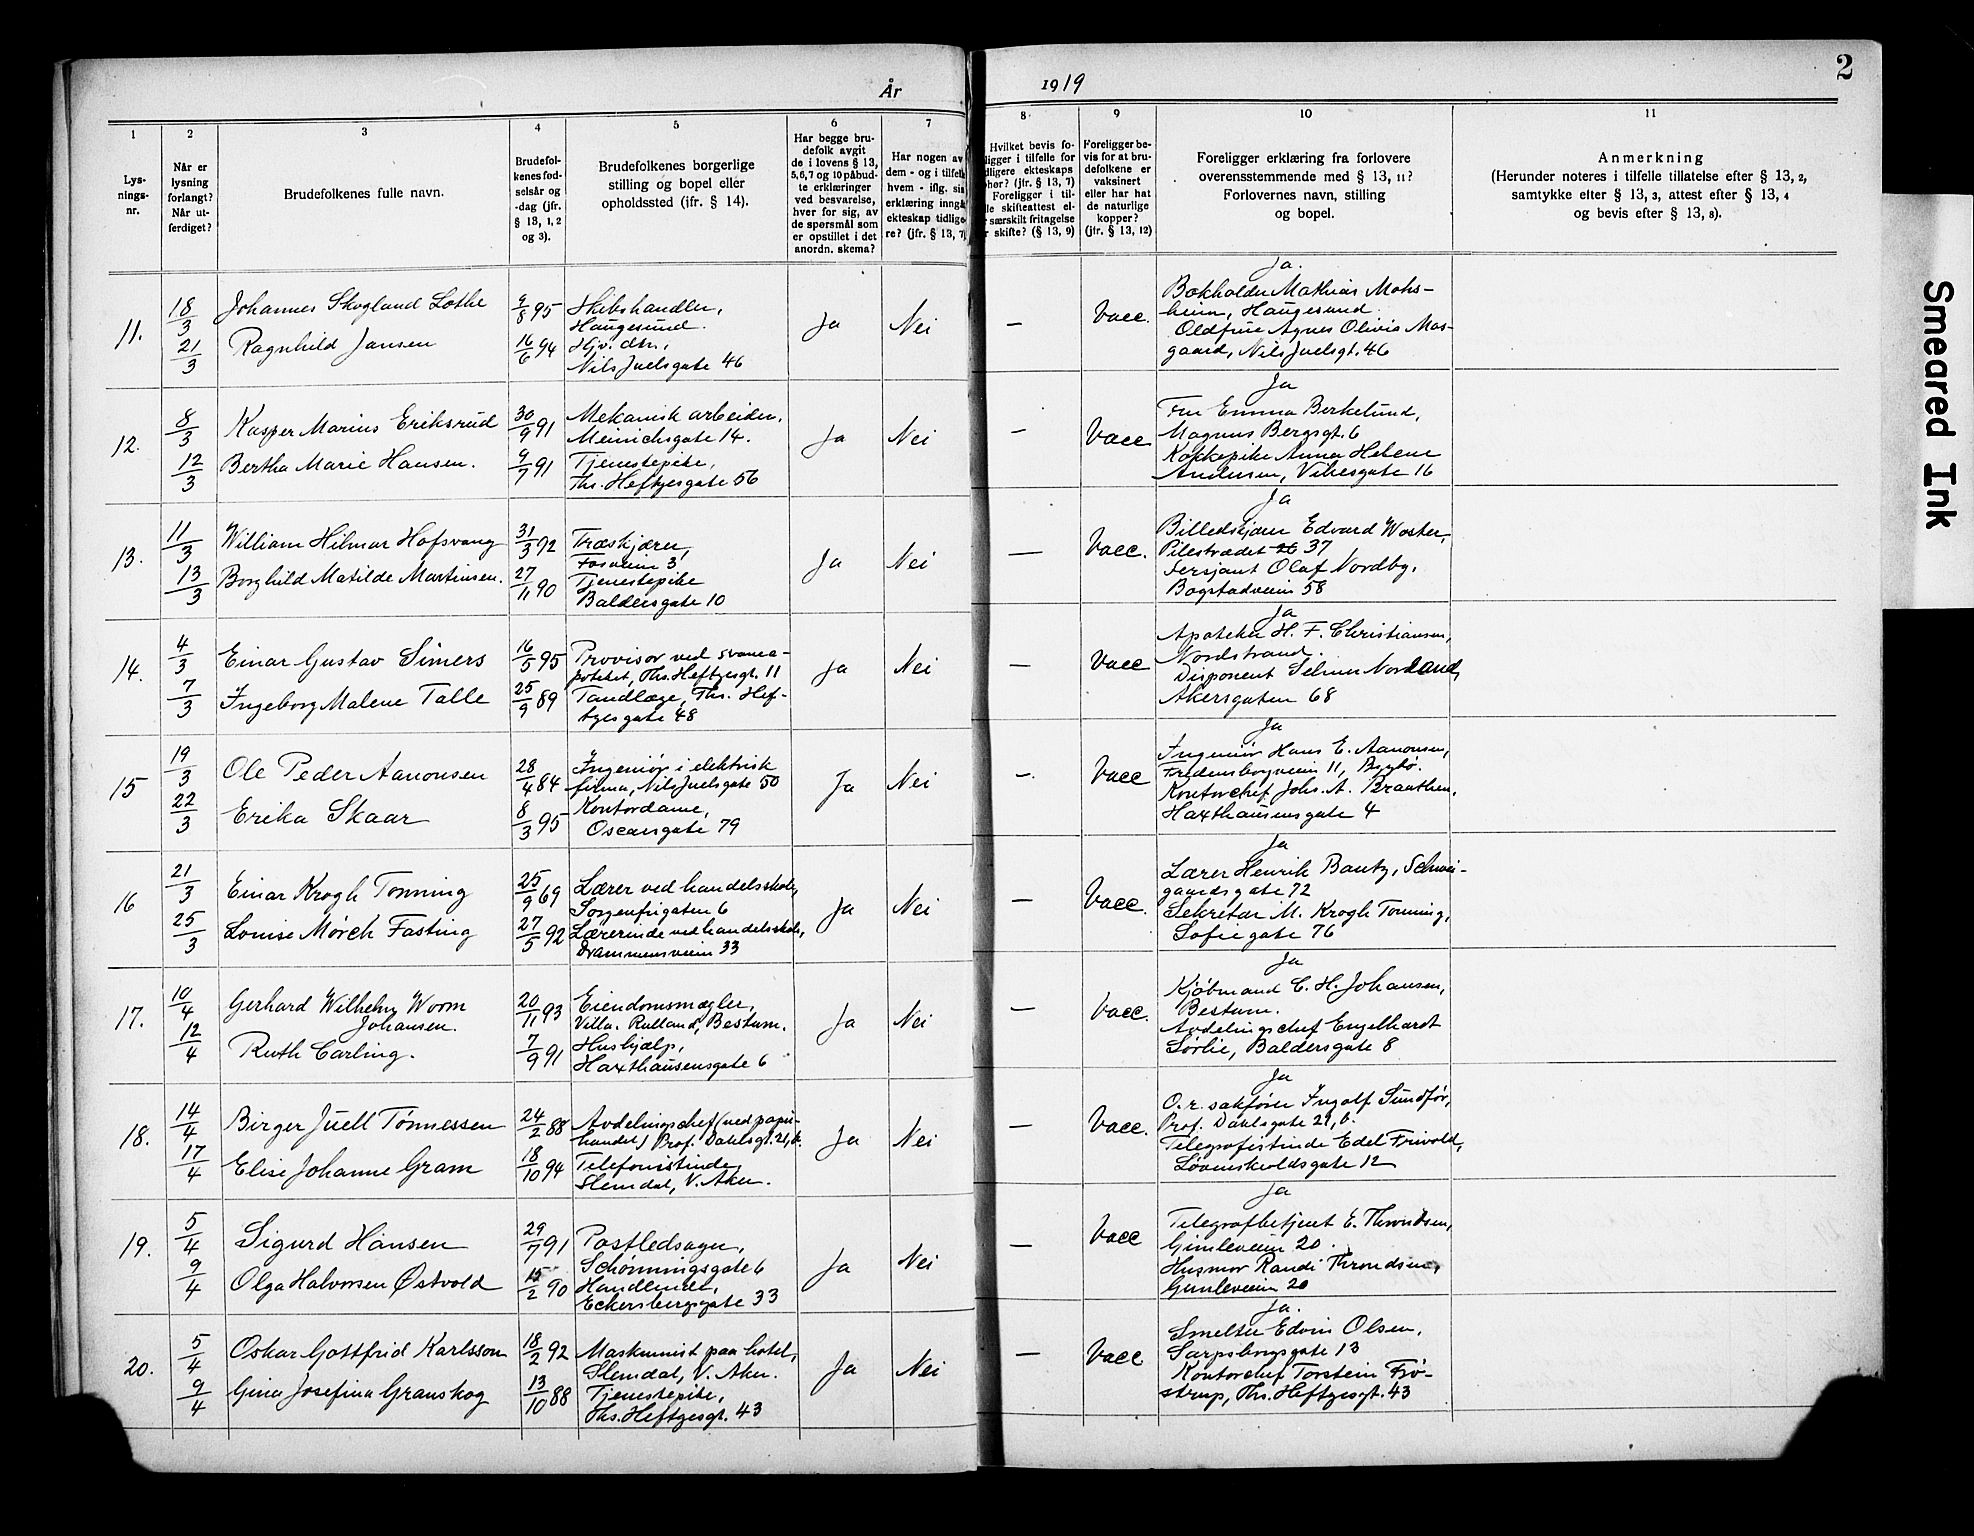 2
År
1919
1
2
3
4
5
6
7
8
9
10
11
Lys-
nings-
nr.
Når er
lysning
forlangt?
Når ut-
ferdiget?
Brudefolkenes fulle navn.
Brudefol-
kenes fød-
selsår og
-dag (jfr.
§ 13, 1, 2
og 3).
Brudefolkenes borgerlige
stilling og bopel eller
opholdssted (ifr. § 14).
Har begge bru-
defolk avgit
de i lovens § 13,
5,6,7 og 10 påbud-
te erklæringer
ved besvarelse,
hver for sig, av
de spørsmål som
er opstillet i det
anordn. skema?
Har nogen av
dem - og i tilfelle
hvem - iflg. sin
erklæring inngå
ekteskap tidlige-
re? (jfr. § 13, 7)
Hvilket bevis fo-
ligger i tilfelle for
dligere ekteskaps
phør? (jfr. § 13, 7)
Foreligger i til-
le skifteattest el-
r særskilt fritagelse
r skifte? (§ 13, 9)
Foreligger be-
vis for at bru-
defolkene er
vaksinert
eller har hat
de naturlige
kopper?
(jfr. § 13, 12)
Foreligger erklæring fra forlovere
overensstemmende med § 13, 11?
Forlovernes navn, stilling
og bopel.
Anmerkning
(Herunder noteres i tilfelle tillatelse efter § 13, 2,
samtykke efter § 13, 3, attest efter § 13, 4
og bevis efter § 13, 8).
11.
18/3
21/3
Johannes Skogland Lothe
Ragnhild Jansen
9/8 95
16/6 94
Skibshandler,
Haugesund.
Hjv. dtr.,
Nils Juelsgate 46
Ja
Nei
—
Vacc.
Ja.
Bokholder Mathias Mohs-
heim, Haugesund
Oldfrue Agnes Olivia Mos-
gaard, Nils Juelsgt. 46
12.
8/3
12/3
Kasper Marius Eriksrud
Bertha Marie Hansen.
30/9 91
9/7 91
Mekanisk arbeider,
Meinichsgate 14.
Tjenestepike,
Ths. Heftyesgate 56
Ja
Nei
—
Vacc
Ja
Fru Emma Berkelund,
Magnus Bergsgt. 6
Kokkepike Anna Helene
Andersen, Vibesgate 16
13.
11/3
13/3
William Hilmar Hofsvang
Borghild Matilde Martinsen.
31/3 92
27/11 90
Træskjærer,
Fosveien 3
Tjenestepike
Baldersgate 10
Ja
Nei
—
Vacc.
Ja
Billedskjærer Edvard Woster,
Pilestrædet 26 37
Sersjant Olaf Nordby,
Bogstadveien 58
14.
4/3
7/3
Einar Gustav Simers
Ingeborg Malene Talle
16/5 95
25/9 89
Provisor ved svanea-
poteket, Ths. Heftyesgt. 11
Tandlæge, Ths. Hef-
tyesgate 48
Ja
Nei
—
Vacc
Ja
Apoteker H. F. Christiansen,
Nordstrand.
Disponent Selmer Nordland,
Akersgaten 68
15
19/3
22/3
Ole Peder Aanonsen
Erika Skaar
28/4 84
8/3 95
Ingeniør i elektrisk
firma, Nils Juelsgate 50
Kontordame,
Oscarsgate 79
Ja
Nei
—
Vacc
Ja
Ingeniør Hans E. Aanonsen,
Fredensborgveien 11,
Kontorchef Johs. A. Braathen,
Haxthausensgate 4
16
21/3
25/3
Einar Krogh Tonning
Louise Mørch Fasting
25/9 69
27/5 92
Lærer ved handelsskole,
Sorgenfrigaten 6
Lærerinde ved handelsskole,
Drammensveien 33
Ja
Nei
—
Vacc.
Ja
Lærer Henrik Bautz, Schwei-
gaardsgate 72
Sekretær M. Krogh Tonning,
Sofiegate 76
17.
10/4
12/4
Gerhard Wilhelm Worm
Johansen.
Ruth Carling.
20/11 93
7/9 91
Eiendomsmægler,
Villa Rulland, Bestum.
Hushjælp,
Haxthausensgate 6
Ja
Nei
—
Vacc.
Ja
Kjøbmand C. H. Johansen,
Bestum.
Avdelingschef Engelhardt
Sørlie, Baldersgate 8
18.
14/4
17/4
Birger Juell Tønnessen
Elise Johanne Gram
24/2 88
18/10 94
Avdelingschef (ved papir-
handel) Prof. Dahlsgt. 21, b.
Telefonistinde
Slemdal, V. Aker.
Ja
Nei
—
Vacc.
Ja
O.r. sakfører Ingolf Sundfør,
Prof. Dahlsgate 21, b.
Telegrafistinde Edel Frivold,
Løvenskioldsgate 12
19.
5/4
9/4
Sigurd Hansen
Olga Halvorsen Østvold
29/7 91
15/2 90
Postledsager,
Schønningsgate 6
Handlende,
Eckersbergsgate 33
Ja
Nei
—
Vacc
Ja
Telegrafbetjent E. Throndsen,
Gimleveien 20.
Husmor Randi Throndsen,
Gimleveien 20
20.
5/4
9/4
Oskar Gottfrid Karlsson
Gina Josefina Granskog
18/2 92
13/10 88
Maskinist paa hotel,
Slemdal, V. Aker.
Tjenestepike,
Ths. Heftyesgt. 43
Ja
Nei
—
Vacc
Ja.
Smelter Edvin Olsen,
Sarpsborggate 13
Kontorchef Torstein Frø-
strup, Ths. Heftyesgt. 43
Smeared Ink